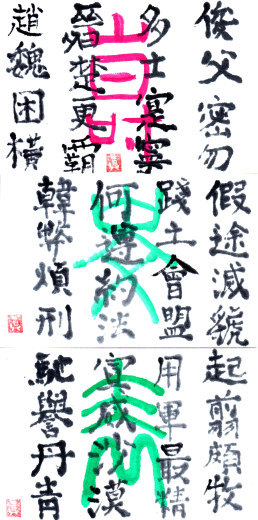 俊父密勿
多士寔寧
晉楚更霸
趙魏困橫
假途滅虢
踐土會盟
何遵約法
韓弊煩刑
起翦頗牧
用軍最精
宣威沙漠
馳譽丹青